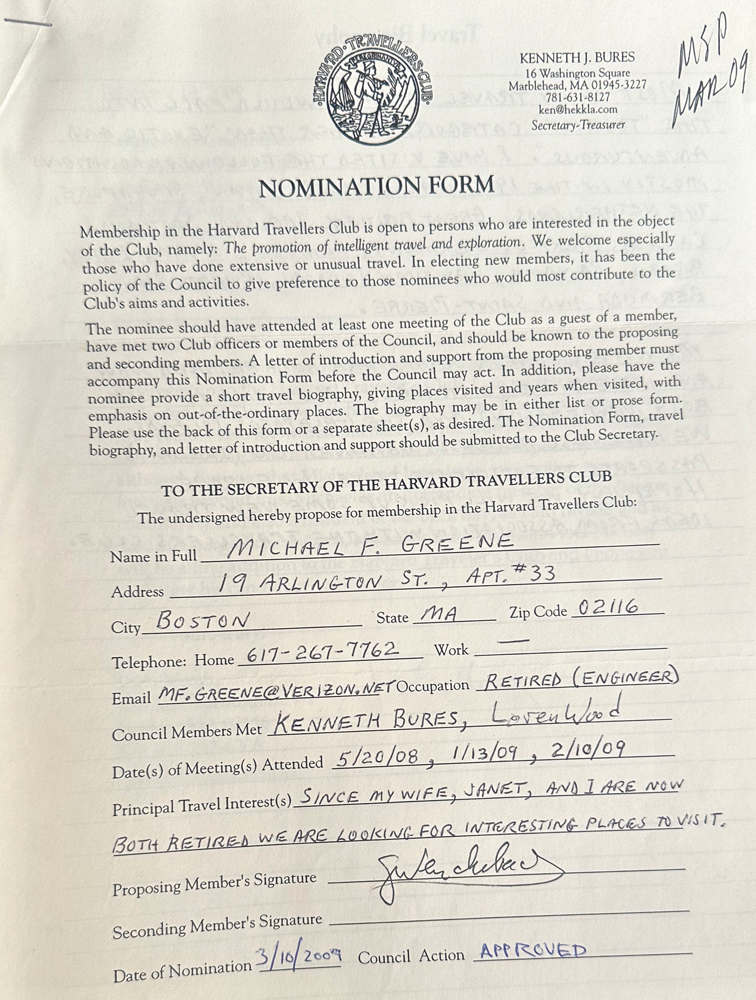 MSP
MAR 09
HARVARD·TRAVELLERS·CLUB·
KENNETH J. BURES
16 Washington Square
Marblehead, MA 01945-3227
781-631-8127
ken@hekkla.com
Secretary-Treasurer
NOMINATION FORM
Membership in the Harvard Travellers Club is open to persons who are interested in the object
of the Club, namely: The promotion of intelligent travel and exploration. We welcome especially
those who have done extensive or unusual travel. In electing new members, it has been the
policy of the Council to give preference to those nominees who would most contribute to the
Club's aims and activities.
The nominee should have attended at least one meeting of the Club as a guest of a member,
have met two Club officers or members of the Council, and should be known to the proposing
and seconding members. A letter of introduction and support from the proposing member must
accompany this Nomination Form before the Council may act. In addition, please have the
nominee provide a short travel biography, giving places visited and years when visited, with
emphasis on out-of-the-ordinary places. The biography may be in either list or prose form.
Please use the back of this form or a separate sheet(s), as desired. The Nomination Form, travel
biography, and letter of introduction and support should be submitted to the Club Secretary.
TO THE SECRETARY OF THE HARVARD TRAVELLERS CLUB
The undersigned hereby propose for membership in the Harvard Travellers Club:
Name in Full MICHAEL F. GREENE
Address 19 ARLINGTON ST., APT. #33
City BOSTON State MA Zip Code 02116
Telephone: Home 617-267-7762 Work —
Email MF.GREENE@VERIZON.NET Occupation RETIRED (ENGINEER)
Council Members Met KENNETH BURES, Loren Wood
Date(s) of Meeting(s) Attended 5/20/08, 1/13/09, 2/10/09
Principal Travel Interest(s) SINCE MY WIFE, JANET, AND I ARE NOW
BOTH RETIRED WE ARE LOOKING FOR INTERESTING PLACES TO VISIT.
Proposing Member's Signature
Seconding Member's Signature
Date of Nomination 3/10/2009 Council Action APPROVED